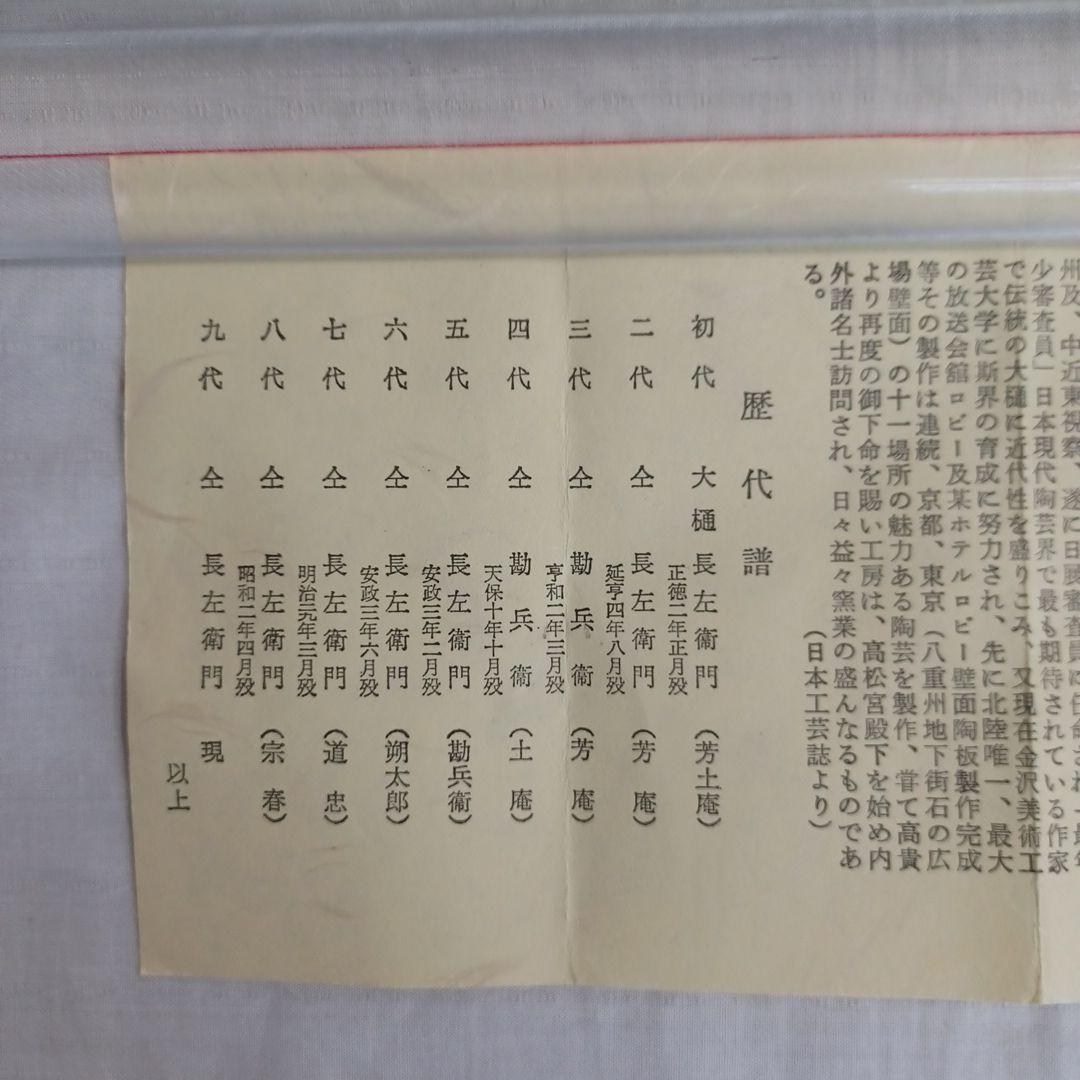 州及、中近東視察、遂に日展審査員に任命され「最年
少審査員」日本現代陶芸界で最も期待されている作家
で伝統の大樋に近代性を盛りこみ、又現在金沢美術工
芸大学に斯界の育成に努力され、先に北陸唯一、最大
の放送会館ロビー及某ホテルロビー壁面陶板製作完成
等その製作は連続、京都、東京(八重州地下街石の広
場壁面)の十一場所の魅力ある陶芸を製作、甞て高貴
より再度の御下命を賜い工房は、高松宮殿下を始め内
外諸名士訪問され、日々益々窯業の盛んなるものであ
る。
(日本工芸誌より)
歴代譜
初代 大樋長左衛門(芳土庵)
正徳二年正月歿
二代 仝 長左衛門(芳庵)
延亨四年八月歿
三代 仝 勘兵衛(芳庵)
亨和二年三月歿
四代 仝 勘兵衛(土庵)
天保十年十月歿
五代 仝 長左衛門(勘兵衛)
安政三年二月歿
六代 仝 長左衛門(朔太郎)
安政三年六月歿
七代 仝 長左衛門(道忠)
明治元年三月歿
八代 仝 長左衛門(宗春)
昭和二年四月歿
九代 仝 長左衛門 現
以上